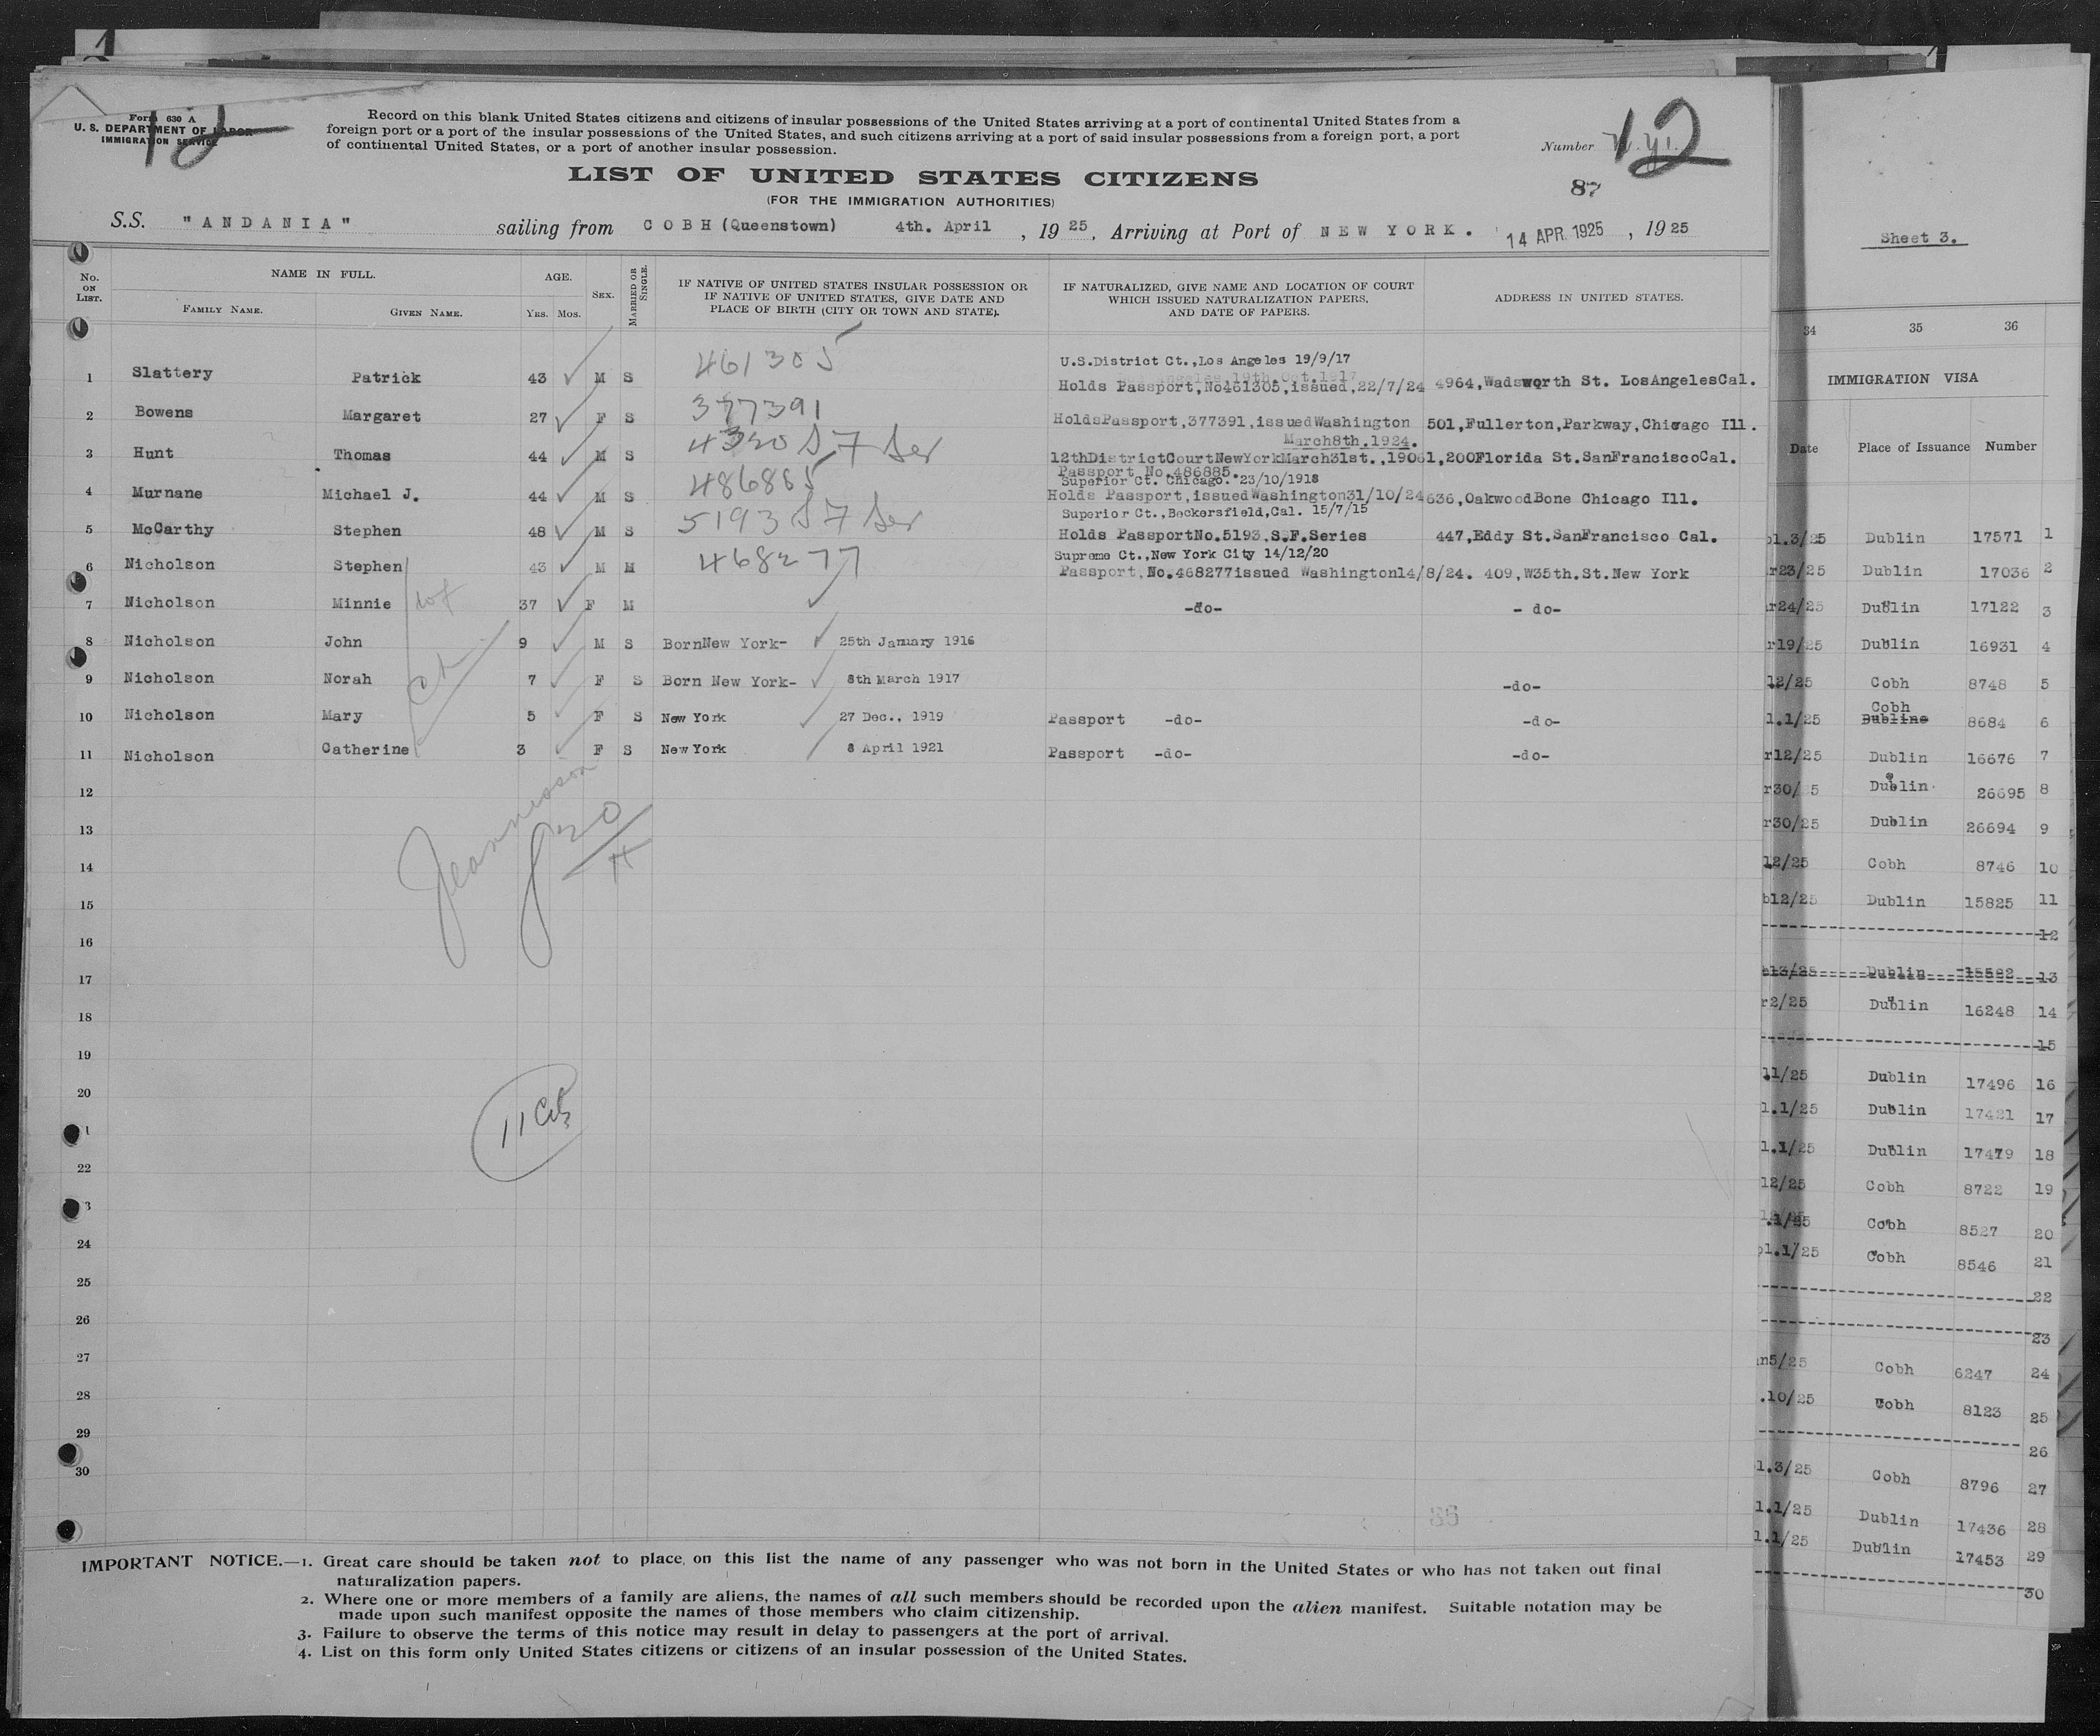 Form 630 A
U. S. DEPARTMENT OF LABOR
IMMIGRATION SERVICE
12
Record on this blank United States citizens and citizens of insular possessions of the United States arriving at a port of continental United States from a
foreign port or a port of the insular possessions of the United States, and such citizens arriving at a port of said insular possessions from a foreign port, a port
of continental United States, or a port of another insular possession.
Number 12
LIST OF UNITED STATES CITIZENS
87
(FOR THE IMMIGRATION AUTHORITIES)
S.S. "ANDANIA" sailing from COBH (Queenstown) 4th. April , 1925, Arriving at Port of NEW YORK. 14 APR. 1925 , 1925
No. ON LIST. NAME IN FULL. AGE. SEX. MARRIED OR SINGLE. IF NATIVE OF UNITED STATES INSULAR POSSESSION OR IF NATIVE OF UNITED STATES, GIVE DATE AND PLACE OF BIRTH (CITY OR TOWN AND STATE). IF NATURALIZED, GIVE NAME AND LOCATION OF COURT WHICH ISSUED NATURALIZATION PAPERS, AND DATE OF PAPERS. ADDRESS IN UNITED STATES.
FAMILY NAME. GIVEN NAME. YRS. MOS.
461305 U.S.District Ct.,Los Angeles 19/9/17
1 Slattery Patrick 43 M S Holds Passport,No461305,issued,22/7/24 4964,Wadsworth St. LosAngelesCal.
377391
2 Bowens Margaret 27 F S HoldsPassport,377391,issuedWashington 501,Fullerton,Parkway,Chicago Ill.
March8th.1924.
4320 S F Ser
3 Hunt Thomas 44 M S 12thDistrictCourtNewYorkMarch31st.,19061,200Florida St.SanFranciscoCal.
Passport No.486885.
486885 Superior Ct. Chicago. 23/10/1918
4 Murnane Michael J. 44 M S Holds Passport,issuedWashington31/10/24 636,OakwoodBone Chicago Ill.
5193 S F Ser Superior Ct.,Beckersfield,Cal. 15/7/15
5 McCarthy Stephen 48 M S Holds PassportNo.5193,S.F.Series 447,Eddy St.SanFrancisco Cal.
468277 Supreme Ct.,New York City 14/12/20
6 Nicholson Stephen 43 M M Passport,No.468277issued Washington14/8/24. 409,W35th.St.New York
7 Nicholson Minnie 37 F M -do- - do-
8 Nicholson John 9 M S BornNew York- 25th January 1916
9 Nicholson Norah 7 F S Born New York- 8th March 1917 -do-
10 Nicholson Mary 5 F S New York 27 Dec., 1919 Passport -do- -do-
11 Nicholson Catherine 3 F S New York 8 April 1921 Passport -do- -do-
12
13
14
15
16
17
18
19
20
11 Cit
22
24
25
26
27
28
29
30
86
IMPORTANT NOTICE.—1. Great care should be taken not to place on this list the name of any passenger who was not born in the United States or who has not taken out final
naturalization papers.
2. Where one or more members of a family are aliens, the names of all such members should be recorded upon the alien manifest. Suitable notation may be
made upon such manifest opposite the names of those members who claim citizenship.
3. Failure to observe the terms of this notice may result in delay to passengers at the port of arrival.
4. List on this form only United States citizens or citizens of an insular possession of the United States.
Sheet 3.
34 35 36
IMMIGRATION VISA
Date Place of Issuance Number
1.3/25 Dublin 17571 1
r23/25 Dublin 17036 2
r24/25 Dublin 17122 3
r19/25 Dublin 16931 4
12/25 Cobh 8748 5
Cobh
1.1/25 Dubline 8684 6
r12/25 Dublin 16676 7
r30/25 Dublin 26695 8
r30/25 Dublin 26694 9
12/25 Cobh 8746 10
b12/25 Dublin 15825 11
12
b13/25 Dublin 15582 13
r2/25 Dublin 16248 14
15
11/25 Dublin 17496 16
1.1/25 Dublin 17431 17
1.1/25 Dublin 17479 18
12/25 Cobh 8722 19
.1/25 Cobh 8527 20
1.1/25 Cobh 8546 21
22
23
n5/25 Cobh 6247 24
.10/25 Cobh 8123 25
26
1.3/25 Cobh 8796 27
1.1/25 Dublin 17436 28
1.1/25 Dublin 17453 29
30